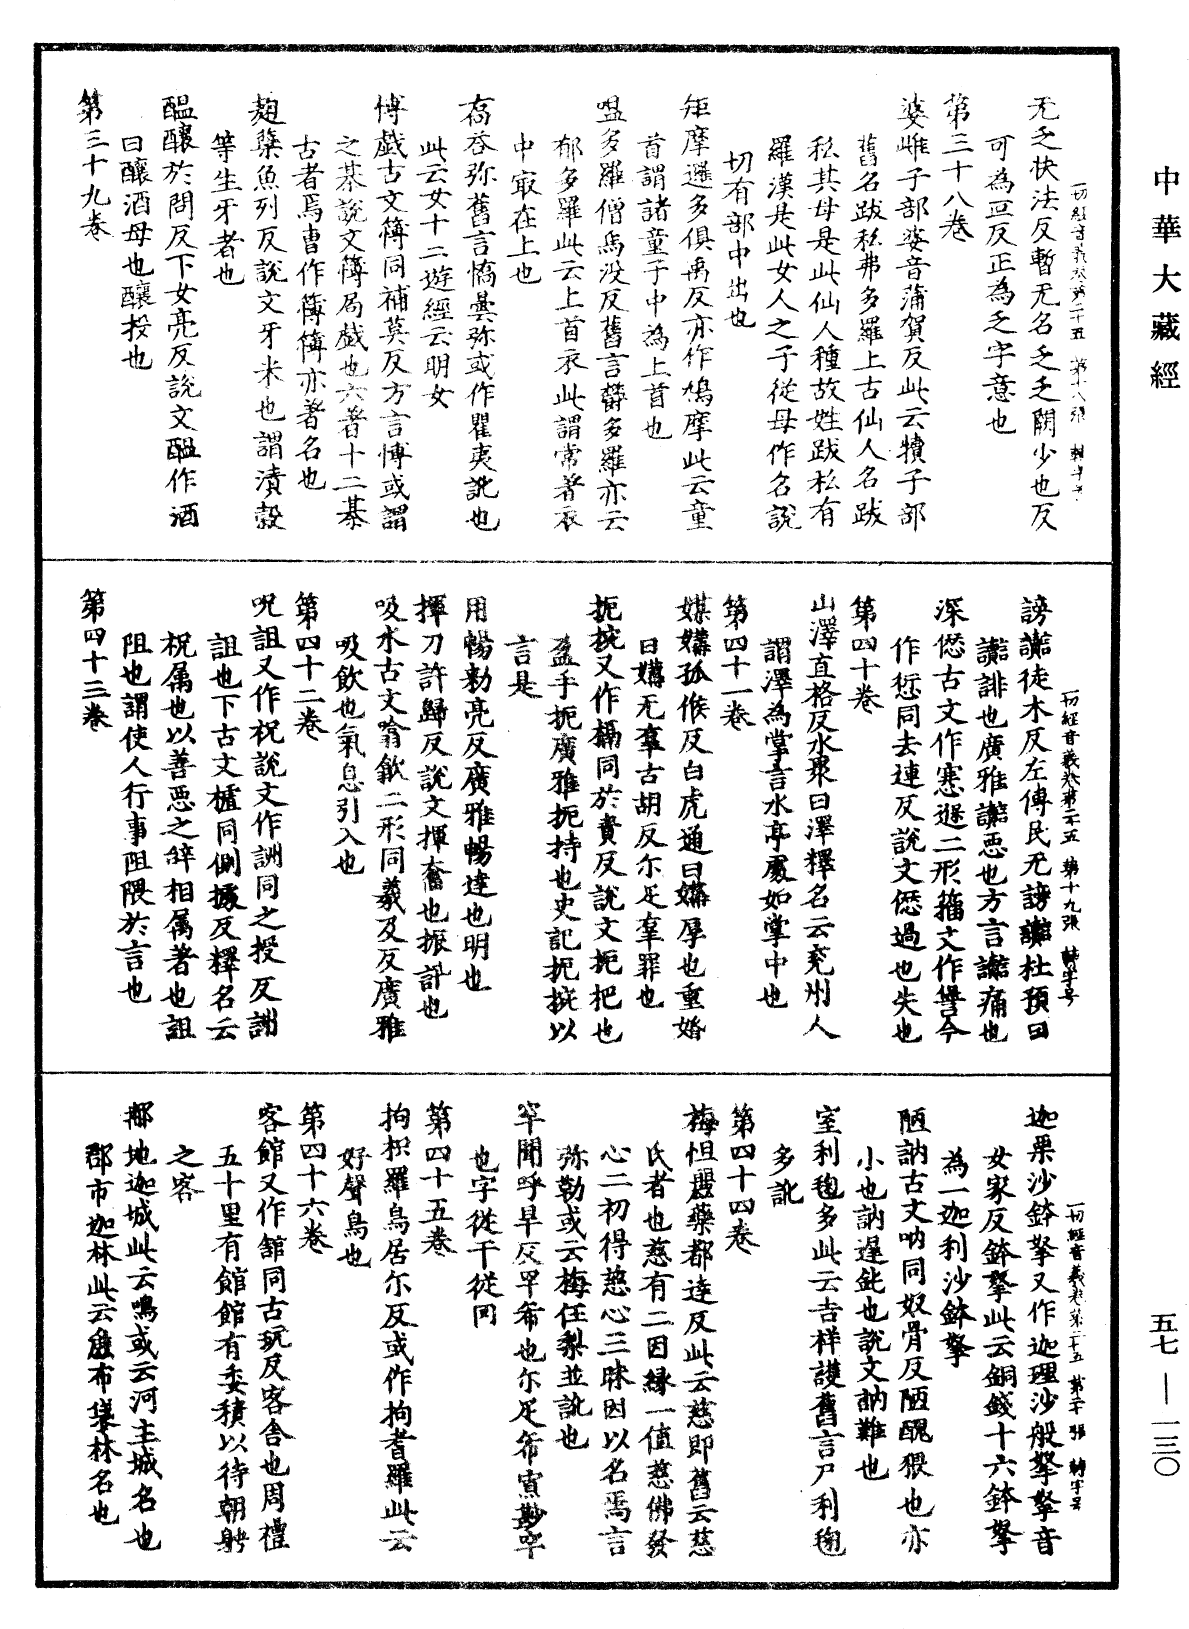 中華大藏經
一切經音義卷第二十五 第十八張 轉字号
无乏扶法反暫无名乏乏闕少也反
可為叵反正為乏字意也
第三十八卷
婆雌子部婆音蒲賀反此云犢子部
舊名跋私弗多羅上古仙人名跋
私其母是此仙人種故姓跋私有
羅漢是此女人之子從母作名說
切有部中出也
矩摩邏多俱禹反亦作鳩摩此云童
首謂諸童子中為上首也
嗢多羅僧烏没反舊言欝多羅亦云
郁多羅此云上首衣此謂常著衣
中㝡在上也
喬答弥舊言憍曇弥或作瞿夷訛也
此云女十二遊經云明女
博戲古文簙同補莫反方言博或謂
之棊說文簙局戲也六著十二棊
古者烏曹作簙簙亦著名也
麹糵魚列反說文牙米也謂漬穀
等生牙者也
醖釀於問反下女亮反說文醖作酒
曰釀酒母也釀投也
第三十九卷
一切經音義卷第二十五 第十九張 轉字号
謗讟徒木反左傳民无謗讟杜預曰
讟誹也廣雅讟惡也方言讟痛也
深愆古文作𠎝𨓵二形籀文作諐今
作𠍴同去連反說文愆過也失也
第四十卷
山澤直格反水衆曰澤釋名云兖州人
謂澤為掌言水亭處如掌中也
第四十一卷
媒媾孤候反白虎通曰媾厚也重婚
曰媾无辜古胡反尒疋辜罪也
扼捥又作搹同於責反說文扼把也
盈手扼廣雅扼持也史記扼捥以
言是
用暢勑亮反廣雅暢達也明也
揮刀許歸反說文揮奮也振訊也
吸水古文噏歙二形同羲及反廣雅
吸飲也氣息引入也
第四十二卷
呪詛又作祝說文作詶同之授反詶
詛也下古文𧞣同側據反釋名云
祝属也以善惡之辞相属著也詛
阻也謂使人行事阻隈於言也
第四十三卷
一切經音義卷第二十五 第二十張 轉字号
迦栗沙鉢拏又作迦理沙般拏拏音
女家反鉢拏此云銅錢十六鉢拏
為一迦利沙鉢拏
陋訥古文呐同奴骨反陋醜猥也亦
小也訥遲鈍也說文訥難也
室利毱多此云吉祥護舊言尸利毱
多訛
第四十四卷
梅怛麗藥都達反此云慈即舊云慈
氏者也慈有二因緣一值慈佛發
心二初得慈心三昧因以名焉言
弥勒或云梅任梨並訛也
罕聞呼旱反罕希也尒疋希寡尠罕
也字從干從网
第四十五卷
拘枳羅鳥居尒反或作拘耆羅此云
好聲鳥也
第四十六卷
客館又作舘同古玩反客舎也周禮
五十里有館館有委積以待朝聘
之客
鄔地迦城此云鳴或云河主城名也
郡市迦林此云麁布㡲林名也
五七—一三〇